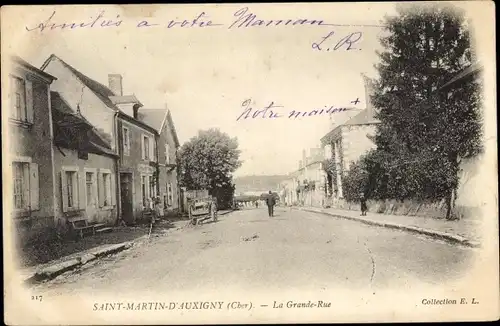 Amitiés à votre Maman
L. R.
Notre maison +
217
SAINT-MARTIN-D'AUXIGNY (Cher). — La Grande-Rue
Collection E. L.